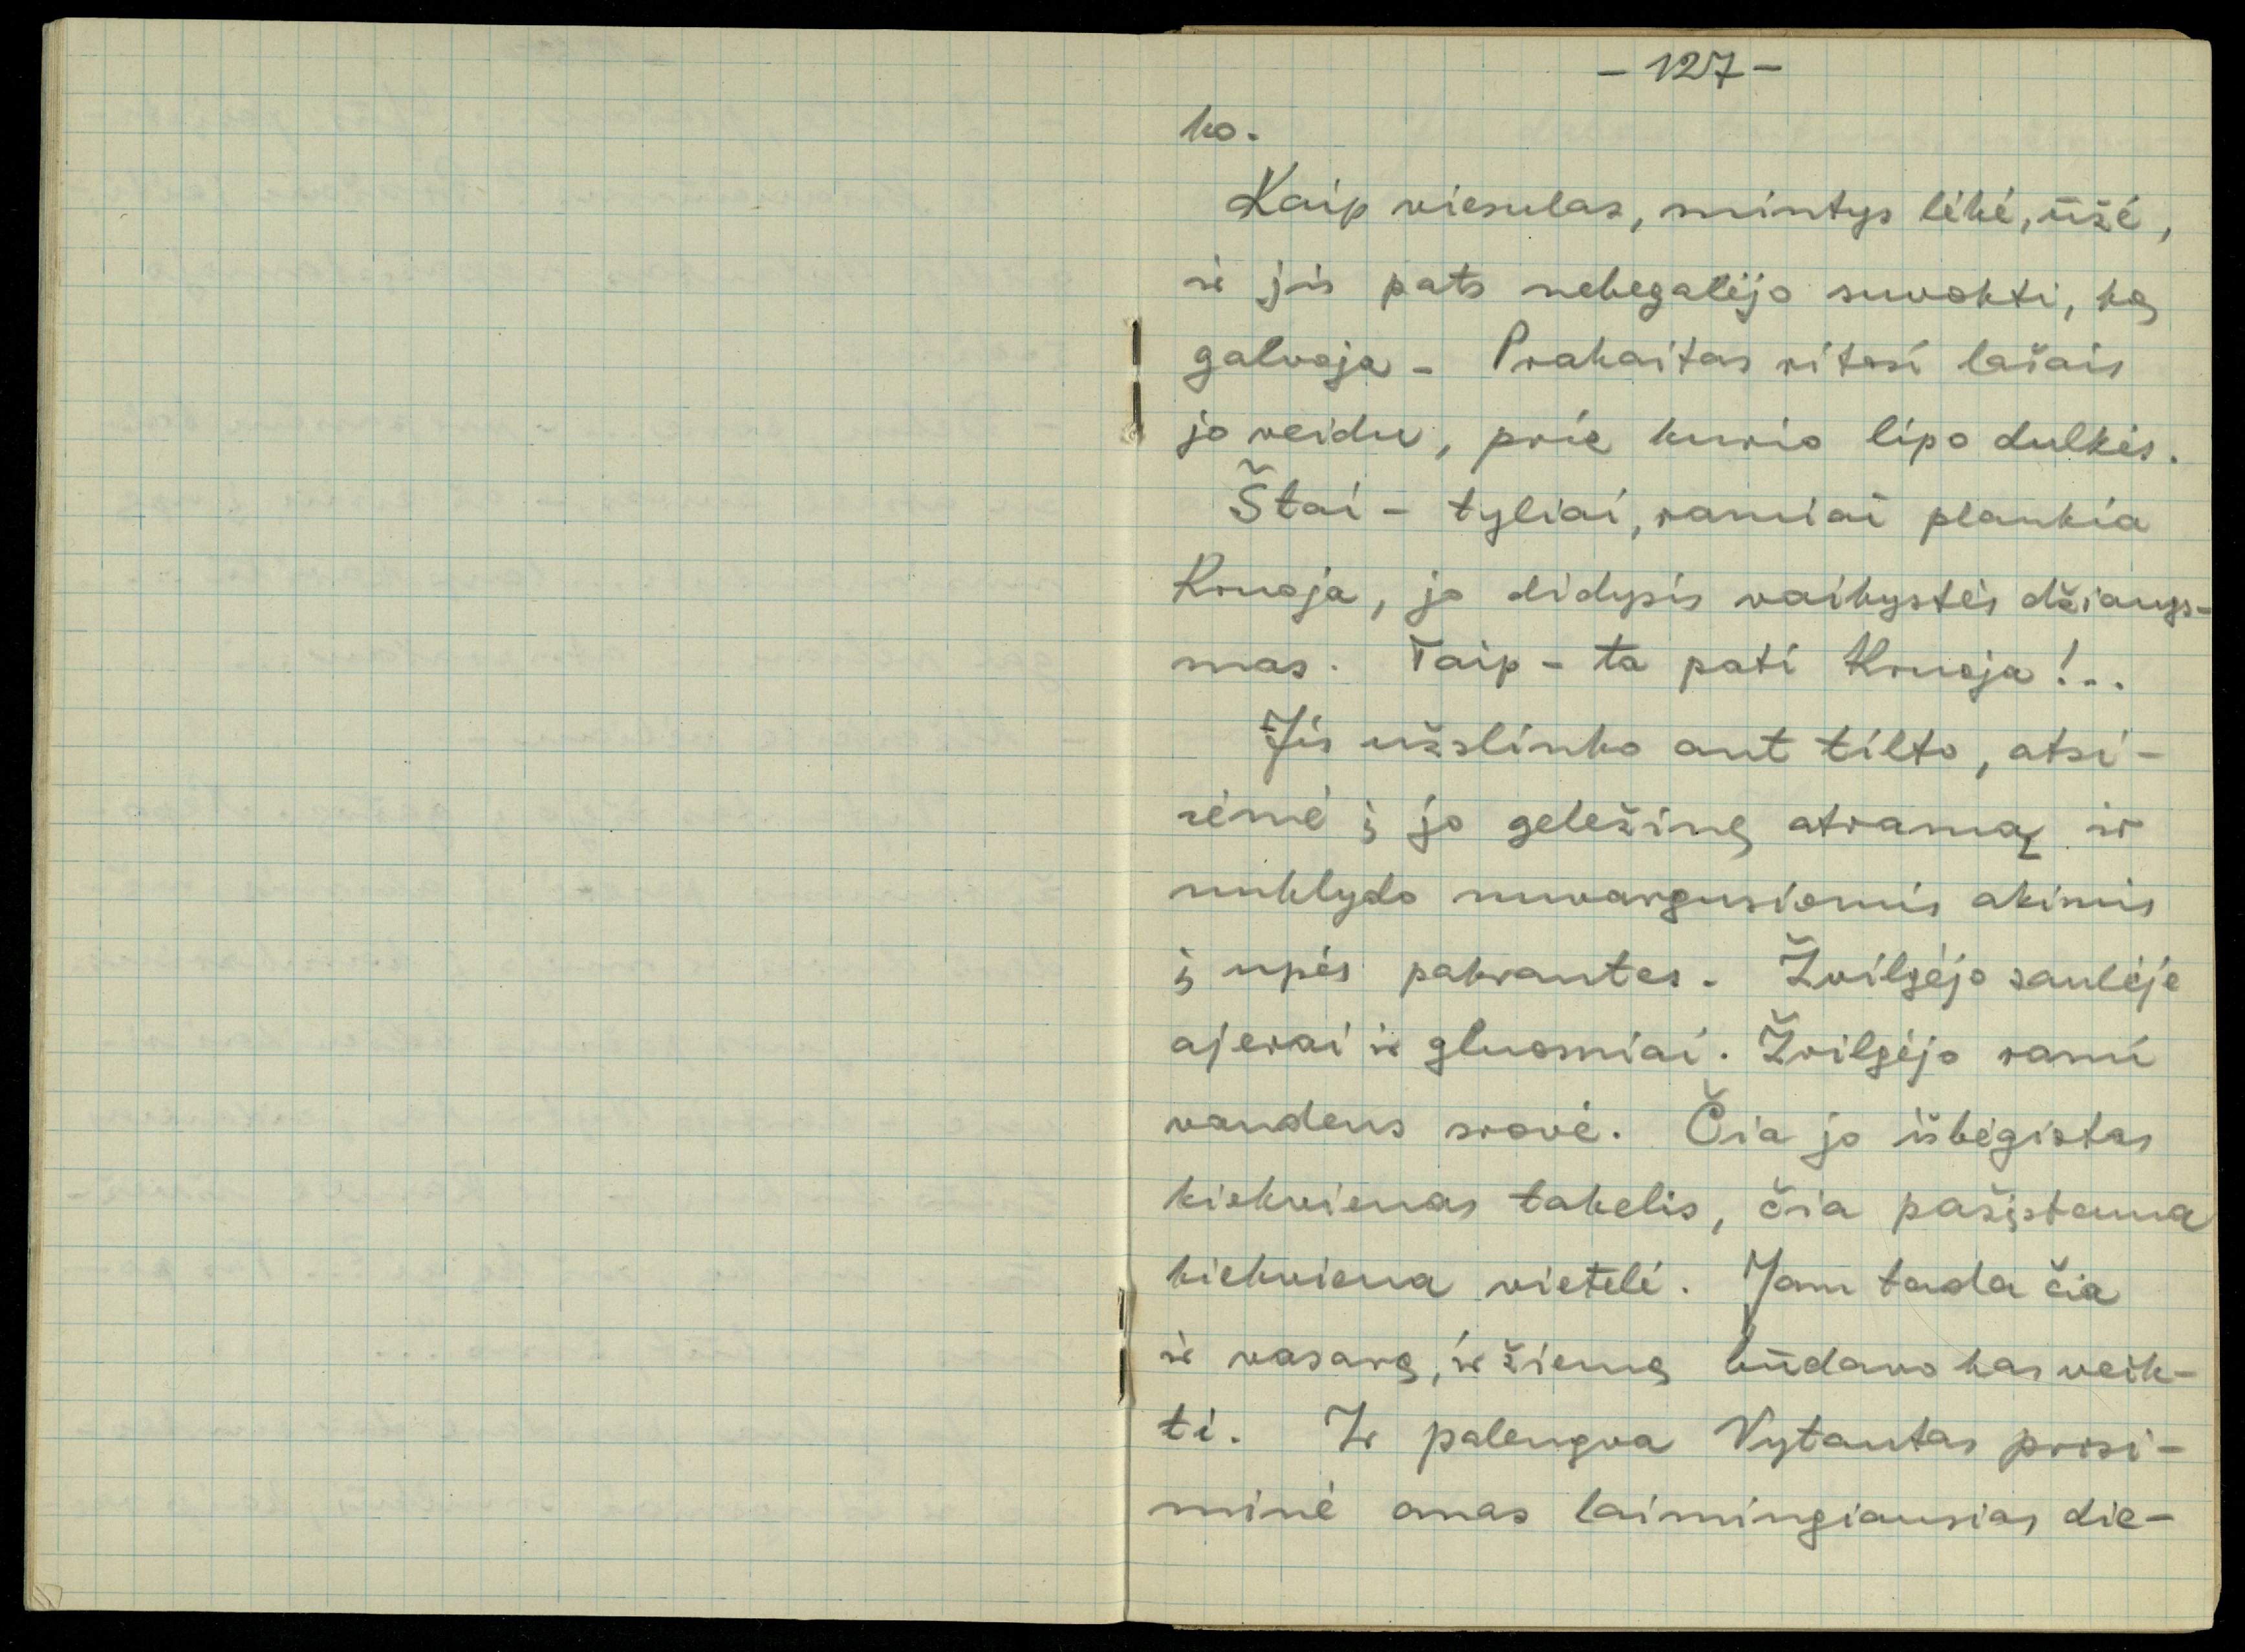 - 127 -
ko.
Kaip viesulas, mintys lėkė, ūžė,
ir jis pats nebegalėjo suvokti, ką
galvoja. Prakaitas ritosi lašais
jo veidu, prie kurio lipo dulkės.
Štai - tyliai, ramiai plaukia
Kruoja, jo didysis vaikystės džiaugs-
mas. Taip - ta pati Kruoja!..
Jis užslinko ant tilto, atsi-
rėmė į jo geležinę atramą ir
nuklydo nuvargusiomis akimis
į upės pakrantes. Žvilgėjo saulėje
ajerai ir gluosniai. Žvilgėjo rami
vandens srovė. Čia jo išbėgiotas
kiekvienas takelis, čia pažįstama
kiekviena vietelė. Jam tada čia
ir vasarą, ir žiemą būdavo kas veik-
ti. Ir palengva Vytautas prisi-
minė anas laimingiausias die-